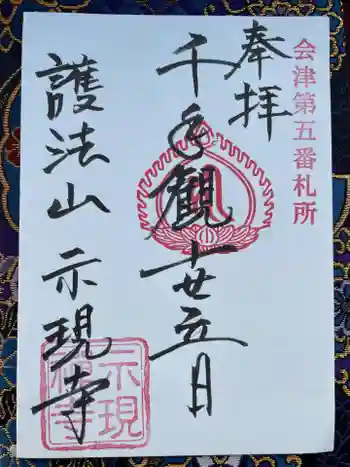 会津第五番札所
奉拝
千手観世音
護法山 示現寺
示現寺